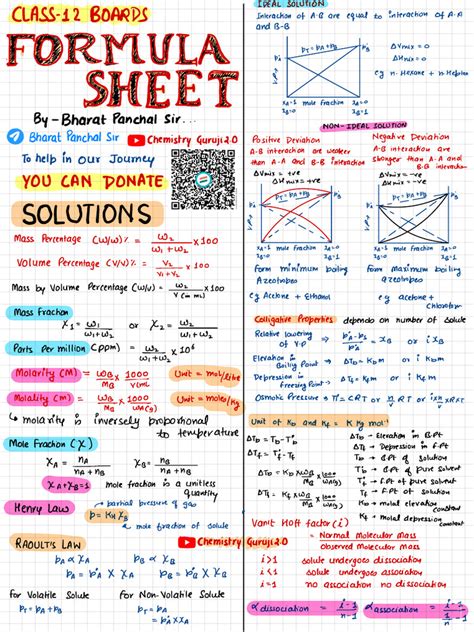 CLASS-12 BOARDS
FORMULA
SHEET
By - Bharat Panchal Sir...
Bharat Panchal Sir
Chemistry Guruji 2.0
To help in our Journey
YOU CAN DONATE
SOLUTIONS
Mass Percentage (W/W)% = W₂ / W₁+W₂ × 100
Volume Percentage (V/V)% = V₂ / V₁+V₂ × 100
Mass by Volume Percentage (W/V) = W₂ / V (in mL) × 100
Mass Fraction
X₁ = W₁ / W₁+W₂ or X₂ = W₂ / W₁+W₂
Parts Per million (ppm) = W₂ / W₁+W₂ × 10⁶
Molarity (M) = WB / MB × 1000 / V(mL)
Unit = mol/litre
Molality (m) = WB / MB × 1000 / WA(g)
Unit = moles/kg
↳ molarity is inversely proportional
to temperature
Mole Fraction (X)
XA = nA / nA+nB
XB = nB / nA+nB
XA+XB=1 mole fraction is a unitless
quantity
Henry Law
partial pressure of gas
p = KH XB
mole fraction of solute
RAOULT'S LAW
Chemistry Guruji 2.0
PA ∝ XA PB ∝ XB
PA = P°A XA PB = P°B X XB
for Volatile Solute for Non-Volatile Solute
PT = PA + PB PT = PA
= P°A XA
IDEAL SOLUTION
Interaction of A-B are equal to interaction of A-A
and B-B
PT = PA + PB
ΔVmix = 0
ΔHmix = 0
eg n-Hexane + n-Heptan
mole fraction
NON-IDEAL SOLUTION
Positive Deviation
A-B interaction are weaker
than A-A and B-B interaction
ΔVmix = +ve
ΔHmix = +ve
mole fraction
form minimum boiling
Azeotropes
eg Acetone + Ethanol
Negative Deviation
A-B interaction are
stronger than A-A and
B-B interaction
ΔVmix = -ve
ΔHmix = -ve
mole fraction
form maximum boiling
azeotropes
eg acetone +
Colligative Properties depends on number of solute
Relative lowering
of V.P
or iXB
Elevation in
Boiling Point → ΔTb = Kb m or i Kb m
Depression in
freezing Point → ΔTf = Kf m or i Kf m
Osmotic Pressure
Unit of Kb and Kf = K Kg mol⁻¹
ΔTb = Tb - T°b
ΔTf = T°f - Tf
ΔTb = Kb × WB / MB × 1000 / WA(g)
ΔTf = Kf × WB / MB × 1000 / WA(g)
ΔTb → Elevation in B.Pt
ΔTf → Depression in F.Pt
Tb → B.Pt of solution
T°b → B.Pt of pure solvent
T°f → F.Pt of pure solvent
Tf → F.Pt of solution
Kb → molal elevation
constant
Kf → molal depression
constant
Vant Hoff factor (i)
= Normal Molecular Mass / Observed Molecular Mass
i>1 solute undergoes dissociation
i<1 solute undergoes association
i=1 no association no dissociation
α dissociation = i-1 / n-1
α association = i-1 / 1/n -1